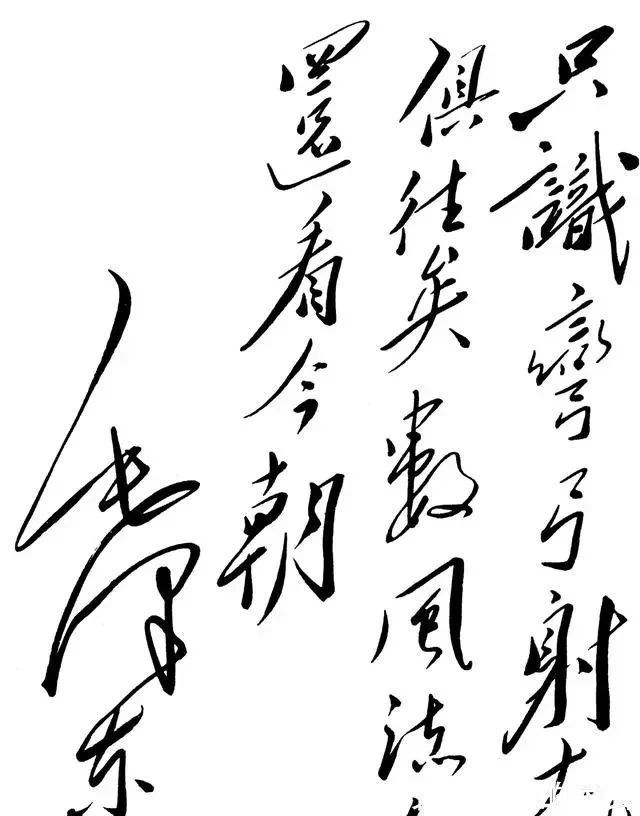 只識彎弓射大
俱往矣數風流
還看今朝
毛澤东